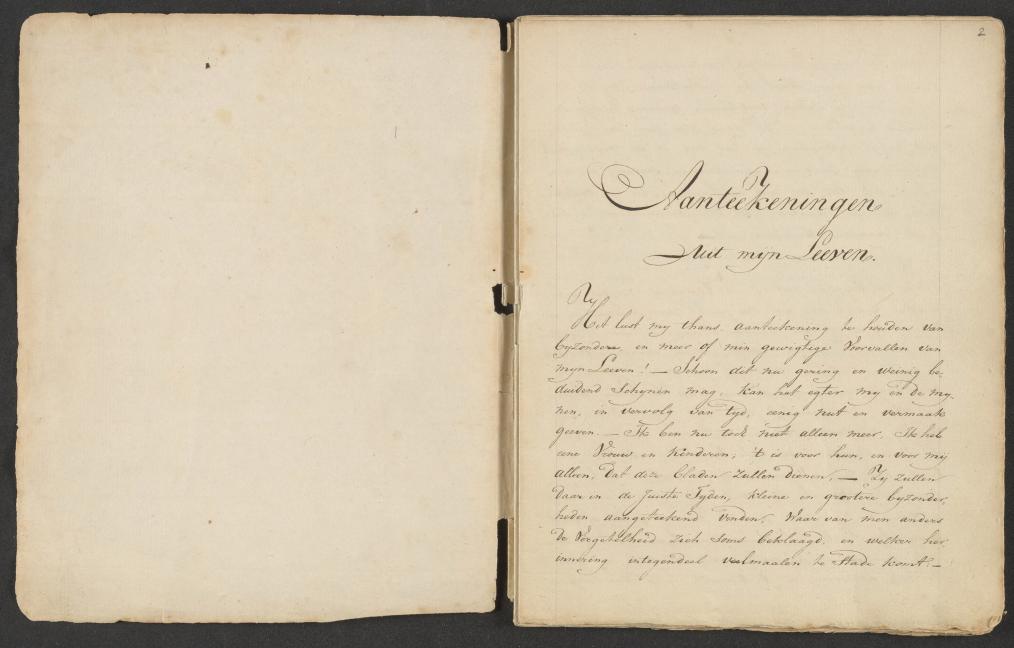 2
Aanteekeningen
Uit mijn Leeven.
Het lust my thans, aanteekening te houden van
byzondere, en meer of min gewigtige Voorvallen van
mijn Leeven! — Schoon dit nu gering en weinig be-
duidend Schynen mag, kan het egter my en de my-
nen, in vervolg van tyd, eenig nut en vermaak
geeven. — Ik ben nu toch niet alleen meer, Ik heb
eene Vrouw en Kinderen; 't is voor hun, en voor mij
alleen, dat deze bladen zullen dienen. — Zy zullen
daar in de Juiste Tyden, kleine en grootere byzonder,
heden aangeteekend vinden, Waar van men anders
de Vergetelheid zich soms beklaagd, en welker her
innering integendeel veelmaalen te Stade komt. —